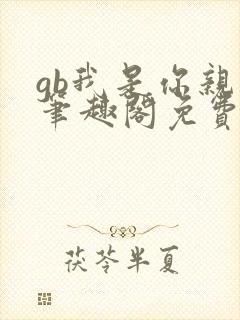 gb我是你亲
笔趣阁免费
茯苓半夏